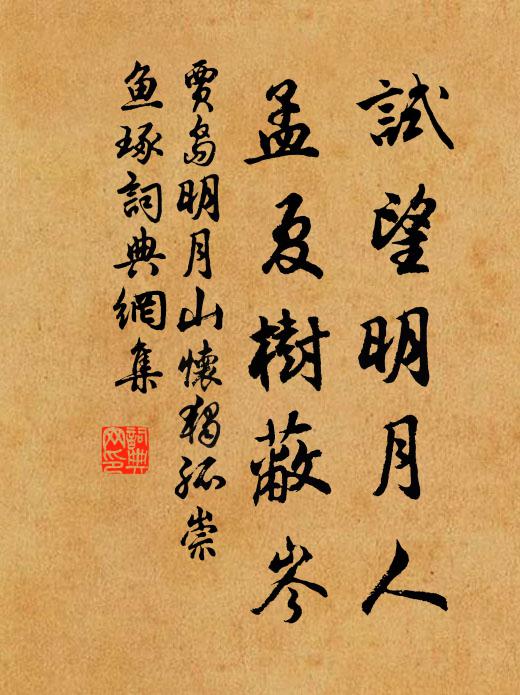 試望明月人
孟夏樹蔽岑
賈島明月山懷獨孤崇
魚琢詞典網集
詞典網印